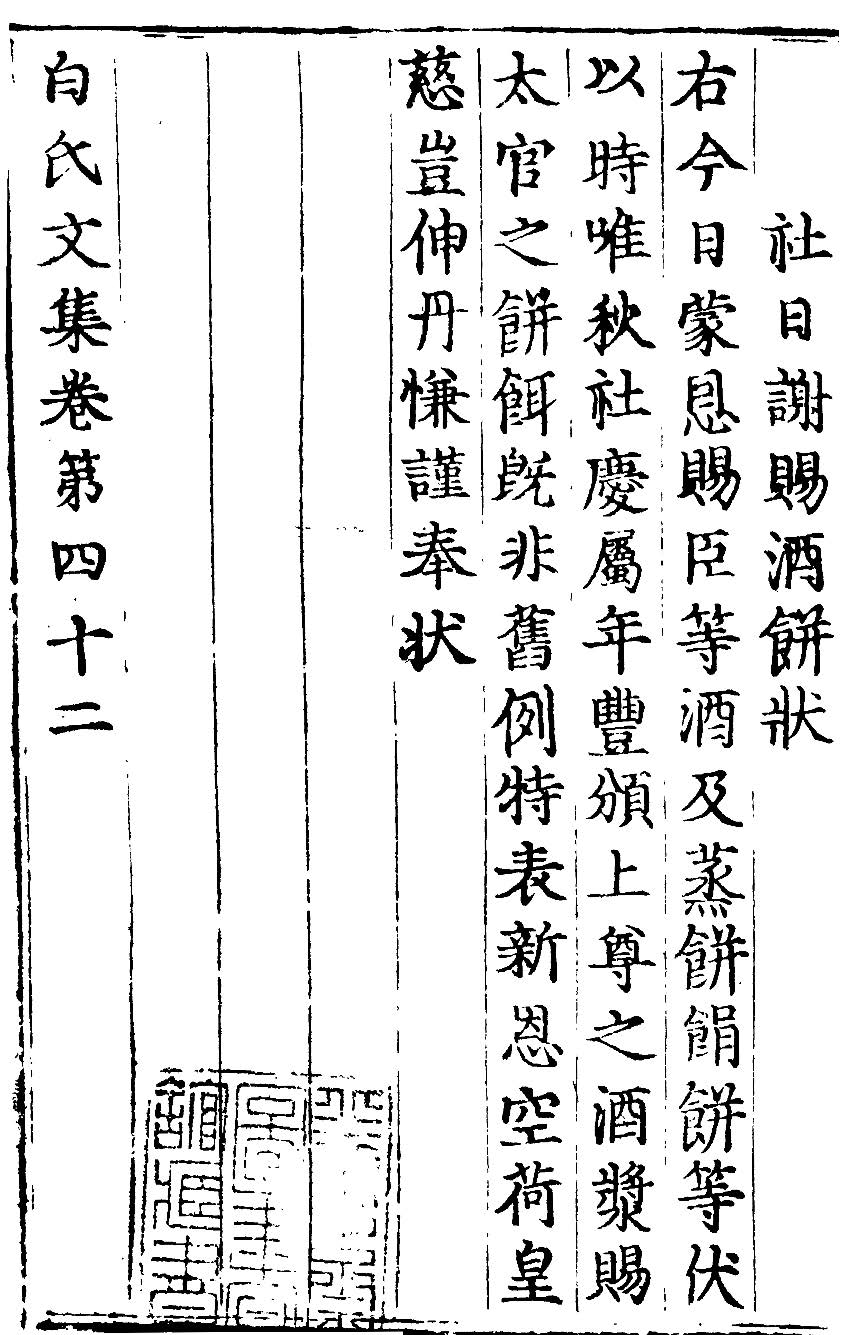 社日謝賜酒餅狀
右今日蒙恩賜臣等酒及蒸餅䭎餅等伏
以時唯秋社慶屬年豐頒上尊之酒漿賜
太官之餅餌既非舊例特表新恩空荷皇
慈豈伸丹慊謹奉状
白氏文集卷第四十二